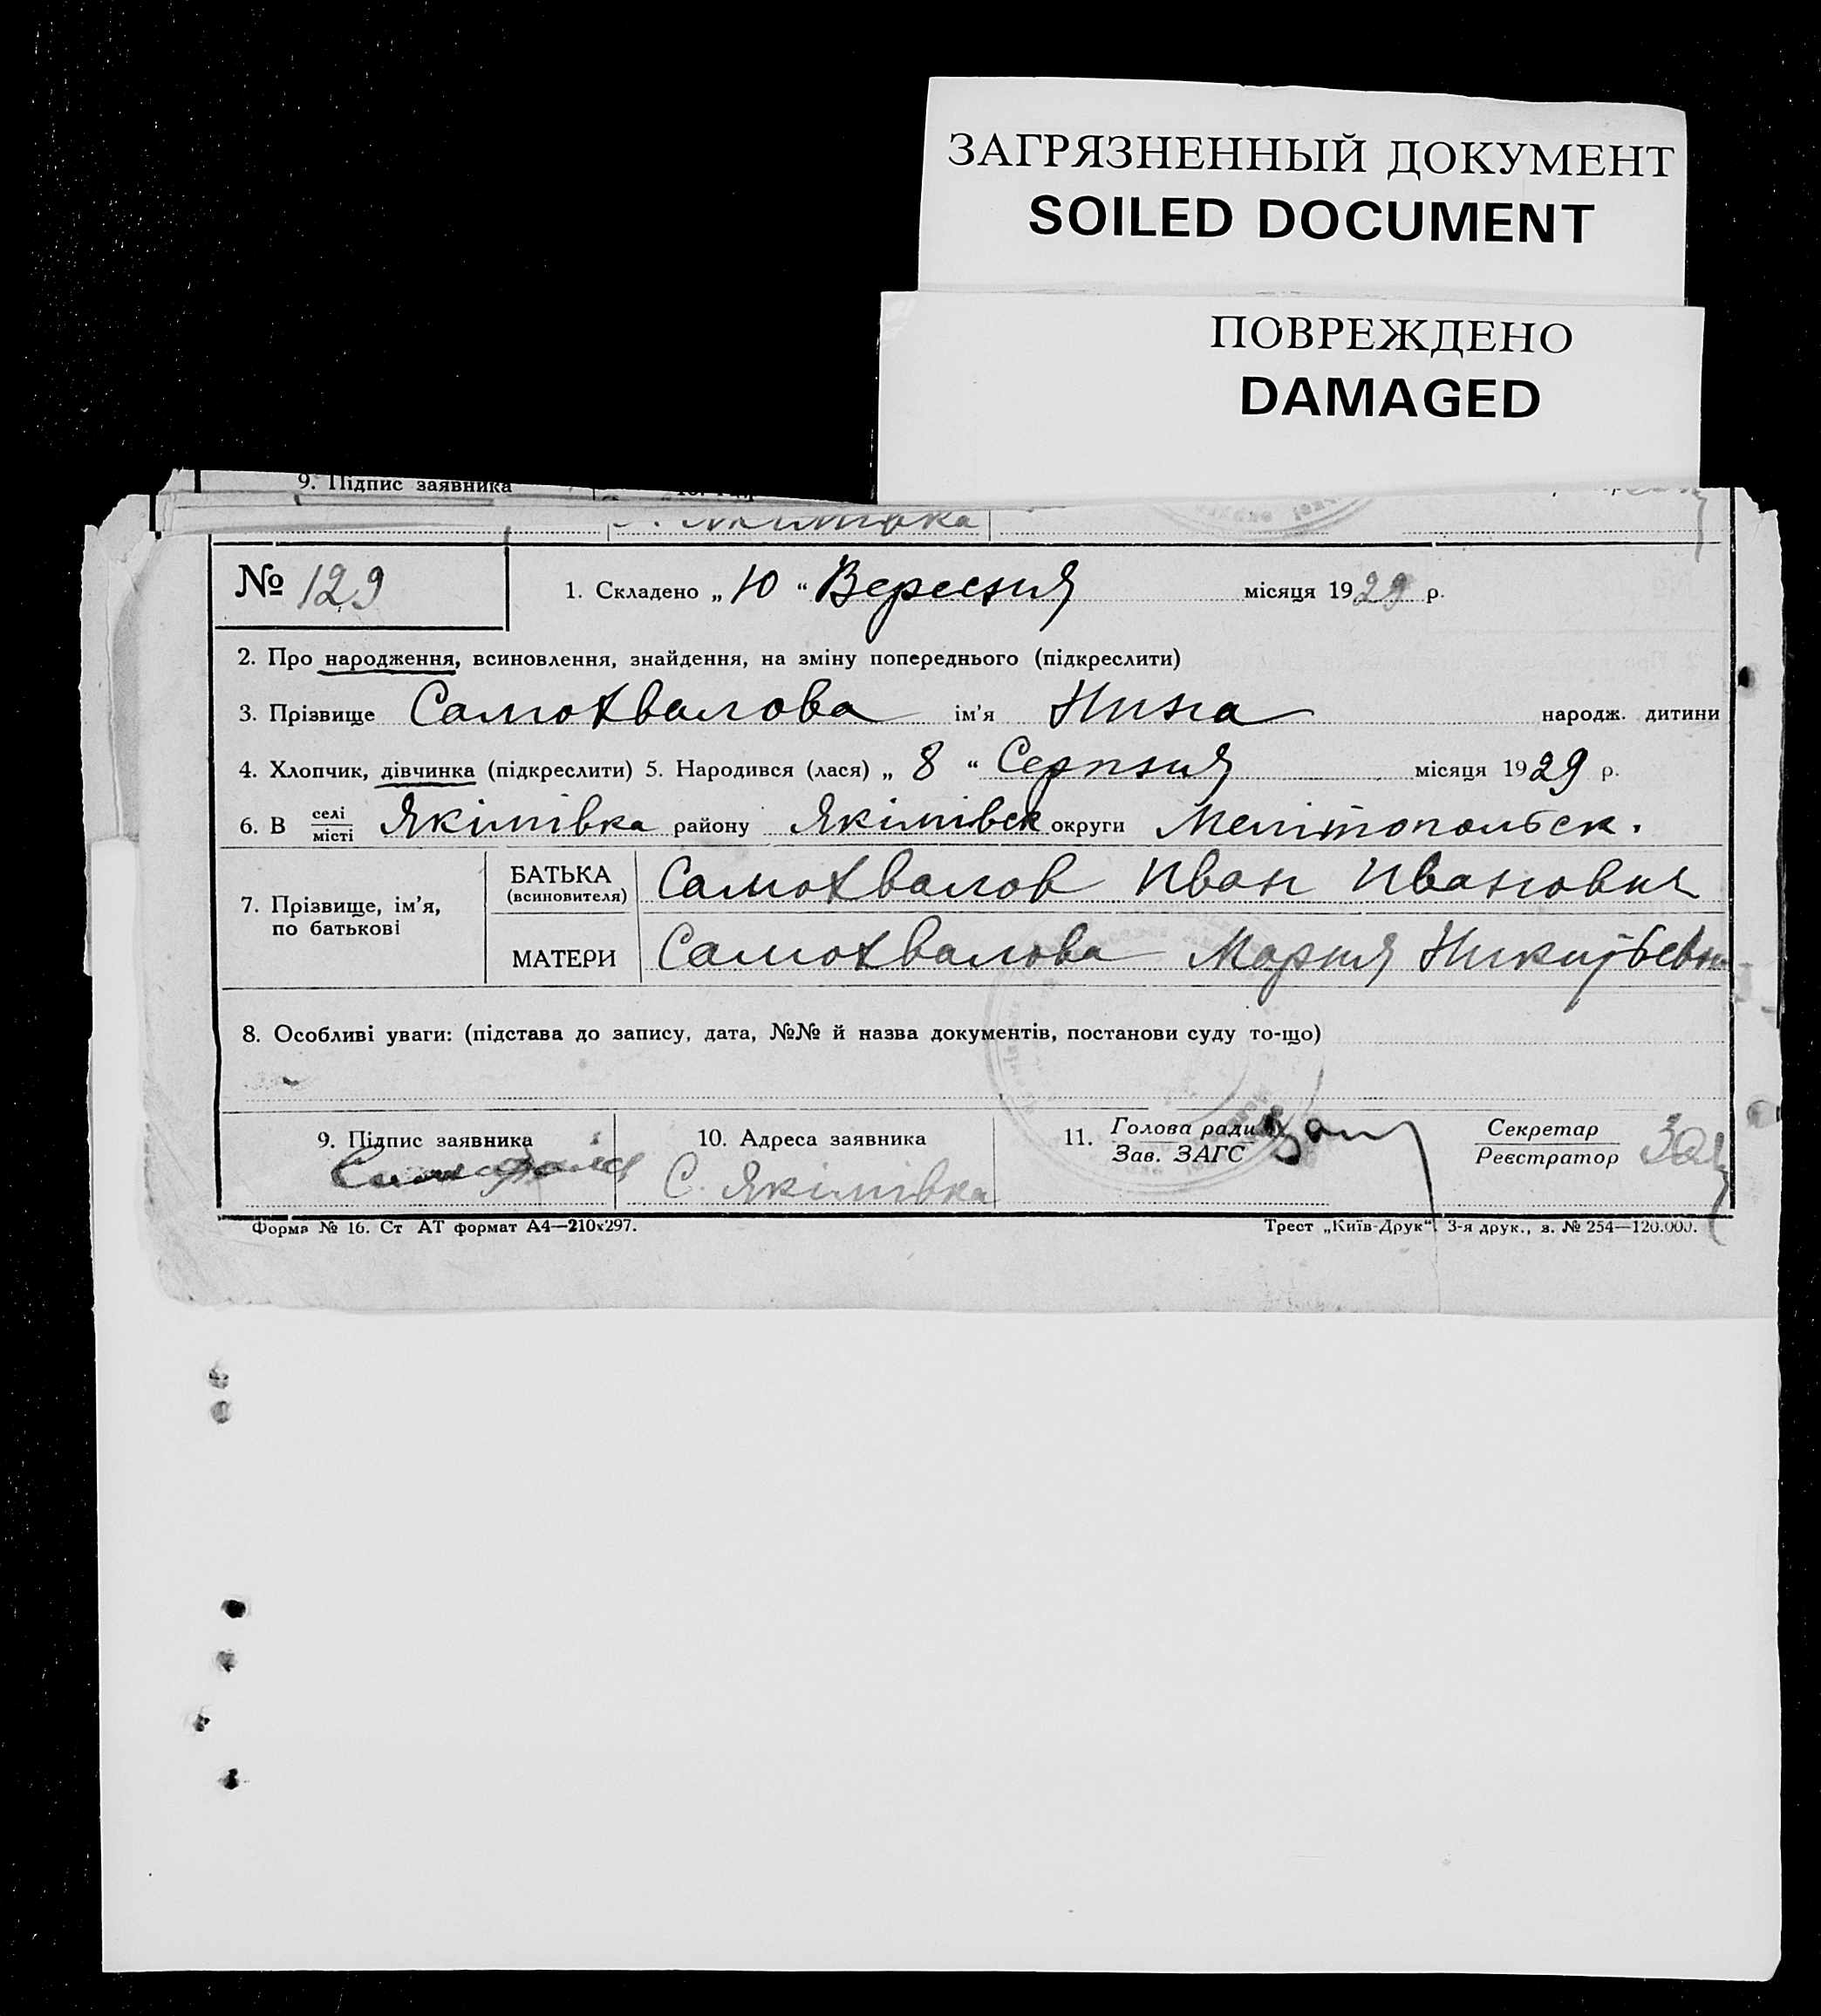 ЗАГРЯЗНЕННЫЙ ДОКУМЕНТ
SOILED DOCUMENT
ПОВРЕЖДЕНО
DAMAGED
9. Підпис заявника
№ 129
1. Складено „ 10 “ Вересня місяця 1929 р.
2. Про народження, всиновлення, знайдення, на зміну попереднього (підкреслити)
3. Прізвище Самохвалова ім’я Нина народж. дитини
4. Хлопчик, дівчинка (підкреслити) 5. Народився (лася) „ 8 “ Серпня місяця 1929 р.
6. В селі/місті Якімівка району Якімівск округи Мелітопольск.
7. Прізвище, ім’я, по батькові
БАТЬКА (всиновителя) Самохвалов Иван Иванович
МАТЕРИ Самохвалова Мария
8. Особливі уваги: (підстава до запису, дата, №№ й назва документів, постанови суду то-що)
9. Підпис заявника
10. Адреса заявника
С. Якімівка
11. Голова ради
Зав. ЗАГС
Секретар
Реєстратор
Форма № 16. Ст АТ формат А4—210х297.
Трест „Київ-Друк“. 3-я друк., з. № 254—120.000.